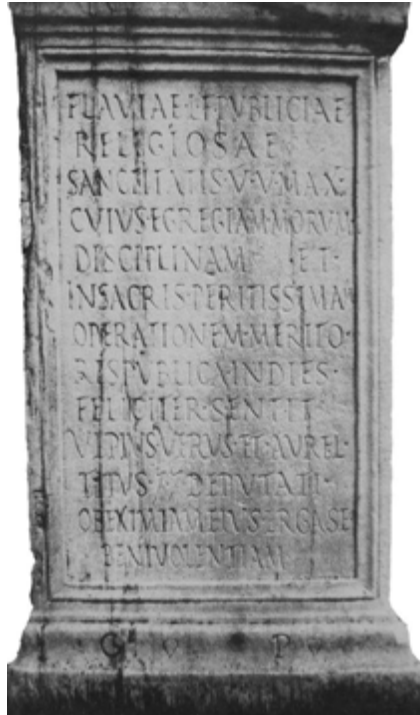 FLAVIAE·L·F·PUBLICIAE
RELIGIOSAE
SANCTITATIS·V·V·MAX·
CVIVS·EGREGIAM·MORVM·
DISCIPLINAM·ET·
IN·SACRIS·PERITISSIMA
OPERATIONEM·MERITO·
RESPVBLICA·IN·DIES·
FELICITER·SENTIT
VLPIVS·VERVS·ET·AVREL·
TITVS DEPVTATI·
OB·EXIMIAM·EIVS·ERGA·SE
BENIVOLENTIAM
G V P